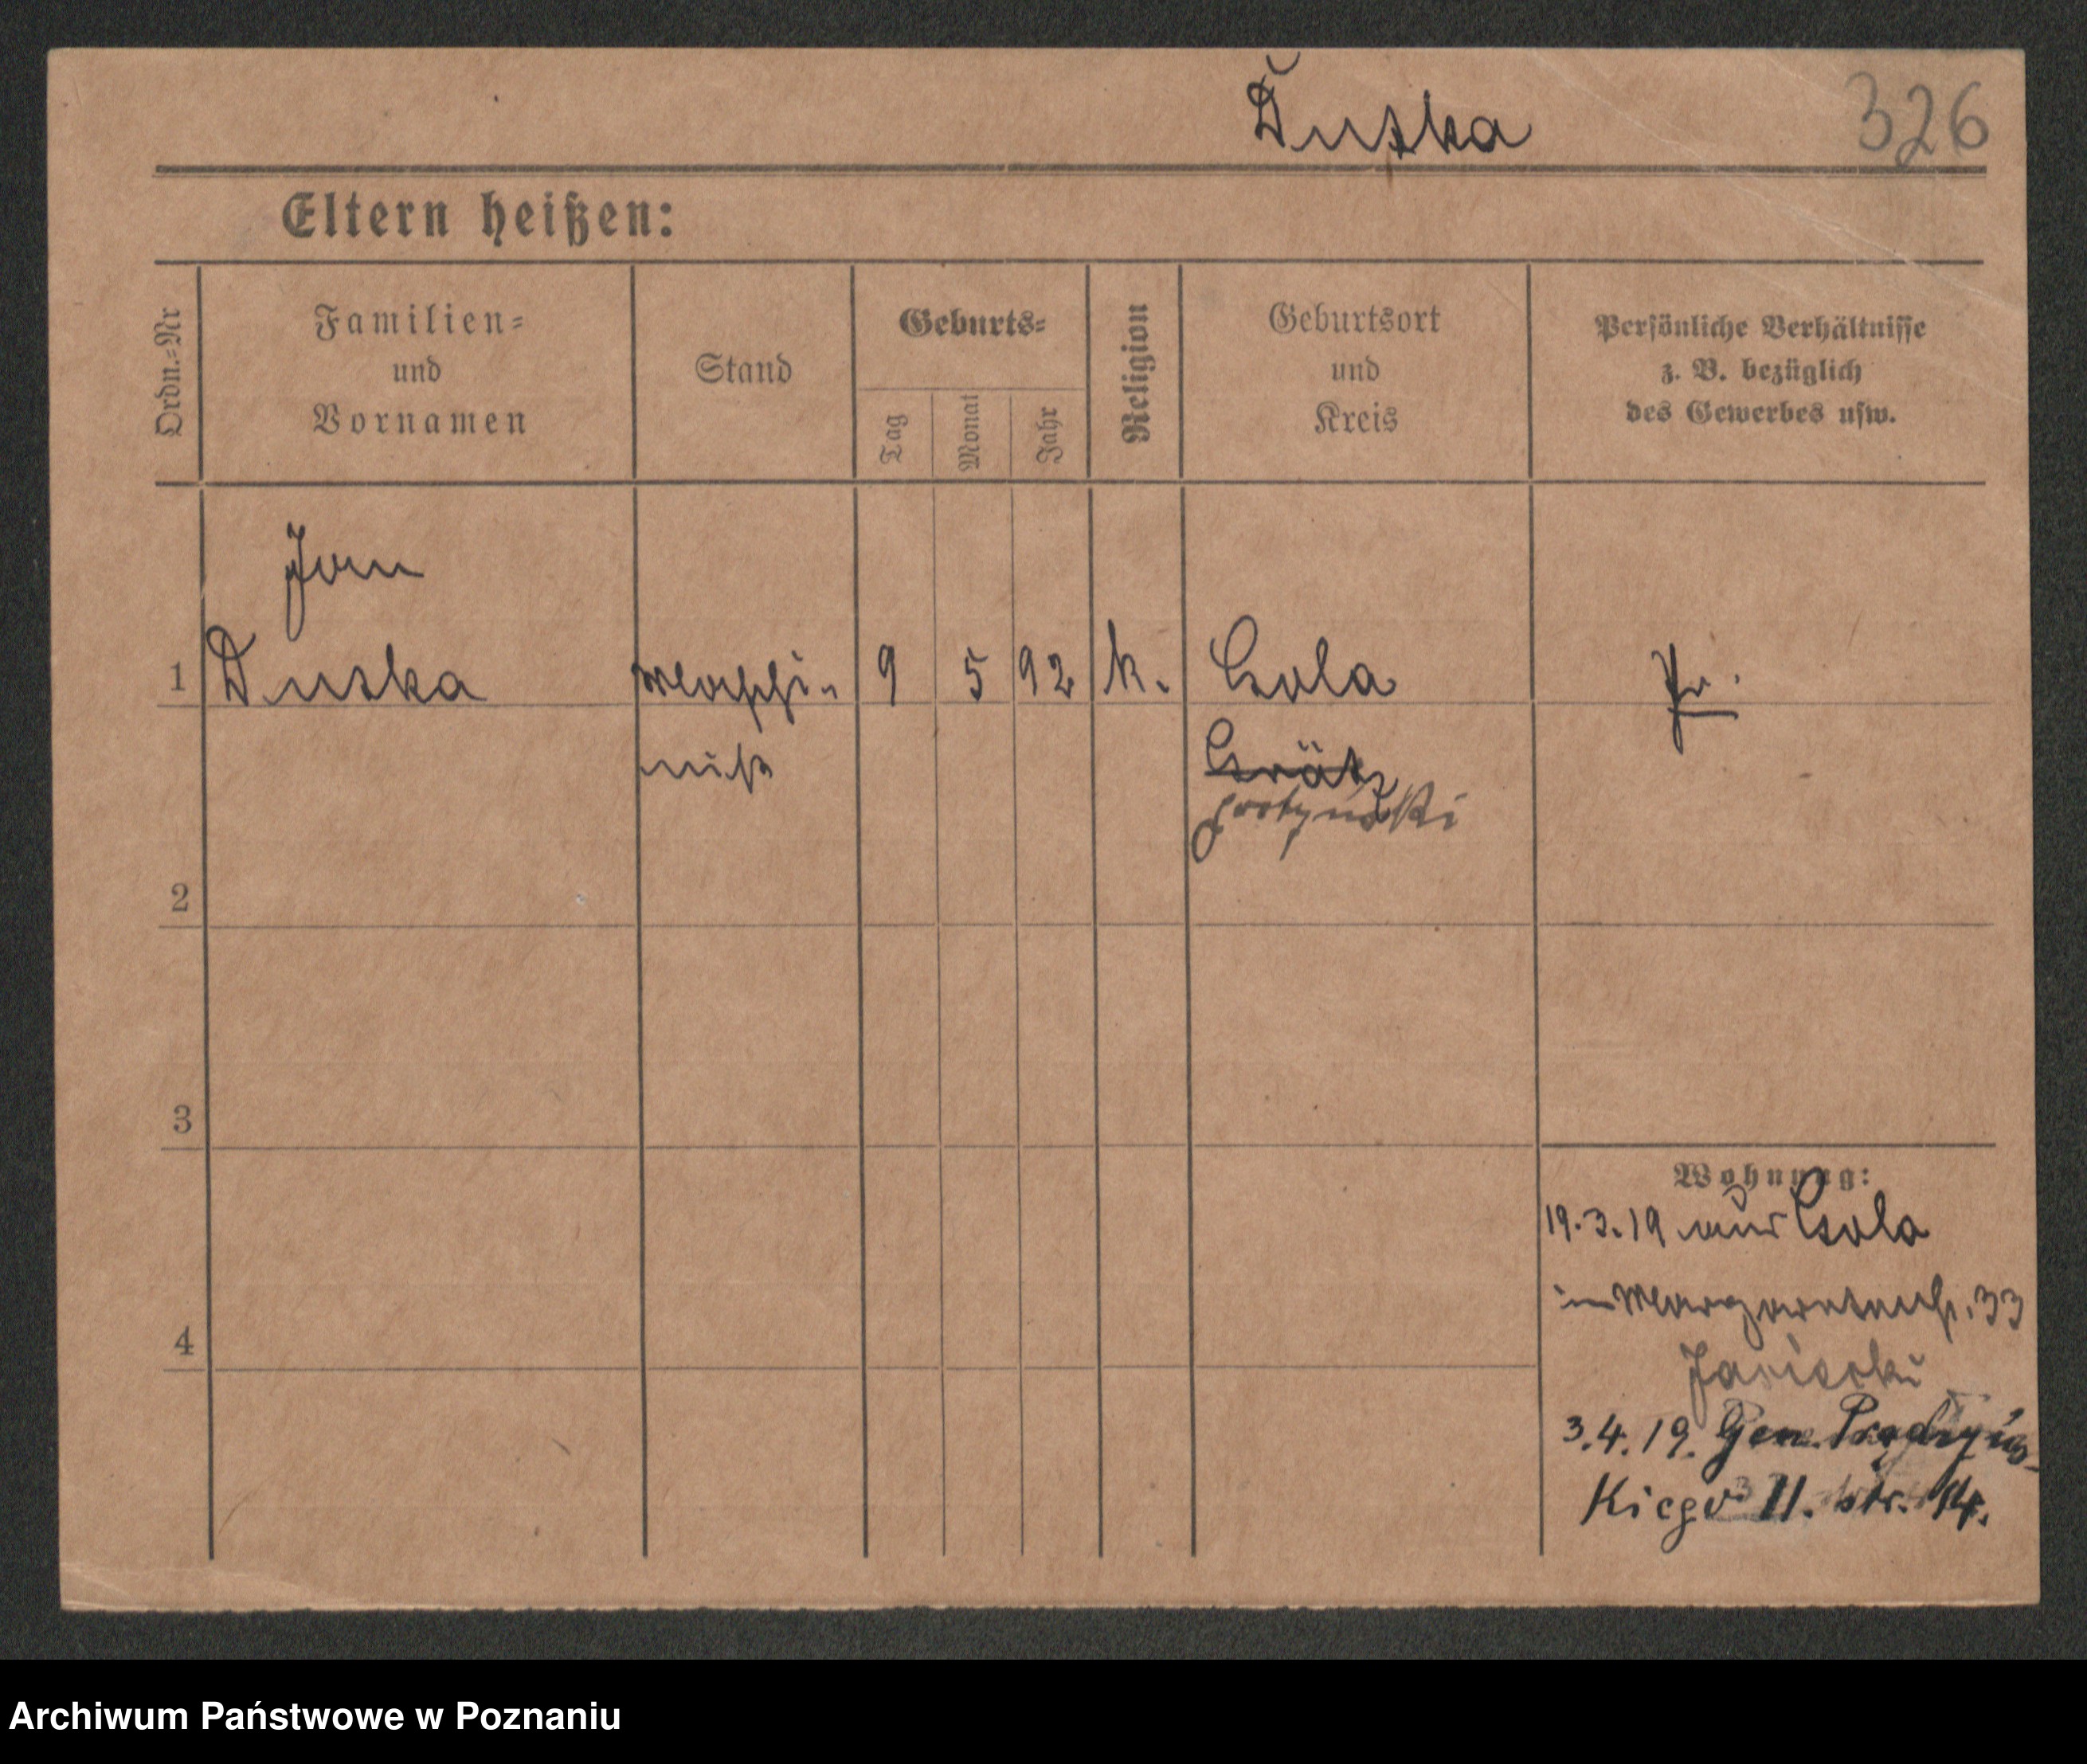 Duszka 326
Eltern heißen:
Ordn.-Nr
Familien-
und
Vornamen
Stand
Geburts-
Tag
Monat
Jahr
Religion
Geburtsort
und
Kreis
Persönliche Verhältnisse
z. B. bezüglich
des Gewerbes usw.
Jan
1 Duszka Maschi- 9 5 92 k. Gola Pr.
nist
Grätz
gostyński
2
3
4
Wohnung:
19.3.19 aus Gola
in Margaretenstr. 33
3.4.19. Gen. Prądzyńs-
Kiego II. str. 14.
Archiwum Państwowe w Poznaniu